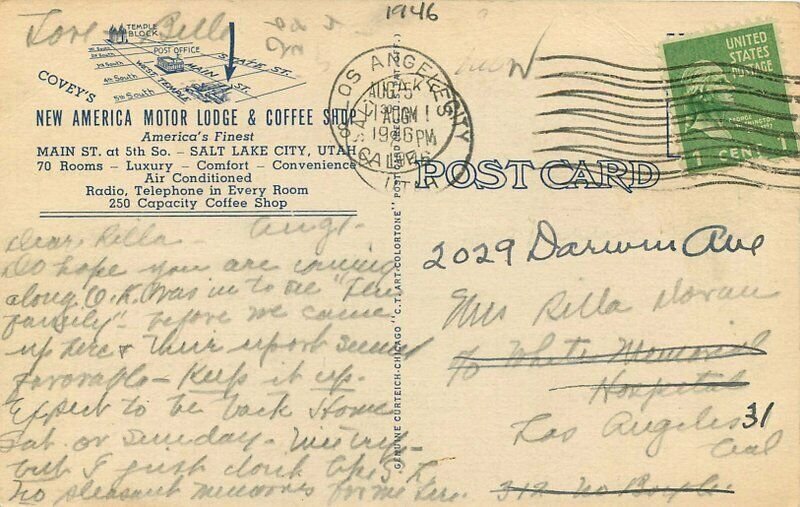 1946
Love Bella
TEMPLE BLOCK
POST OFFICE
4th South
5th South
WEST TEMPLE
MAIN ST.
STATE ST.
COVEY'S
NEW AMERICA MOTOR LODGE & COFFEE SHOP
America's Finest
MAIN ST. at 5th So. - SALT LAKE CITY, UTAH
70 Rooms - Luxury - Comfort - Convenience
Air Conditioned
Radio, Telephone in Every Room
250 Capacity Coffee Shop
Dear Rilla - Aug 1-
Do hope you are coming
along O.K. Was in to see "
family" before we came
up here & their report seemed
favorable - Keep it up.
Expect to be back Home
Sat. or Sunday -
but I just don't like S. L.
No pleasant memories for me here.
GENUINE CURTEICH-CHICAGO "C.T. ART-COLORTONE" POST CARD
LOS ANGELES
CALIF.
AUG 5
1946
AUG 1
PM
UTAH
UNITED STATES POSTAGE
GEORGE WASHINGTON
1 CENT 1
POST CARD
2029 Darwin Ave
Mrs Rilla Doran
c/o White Memorial
Hospital
Los Angeles 31
Cal
312 No Boyle